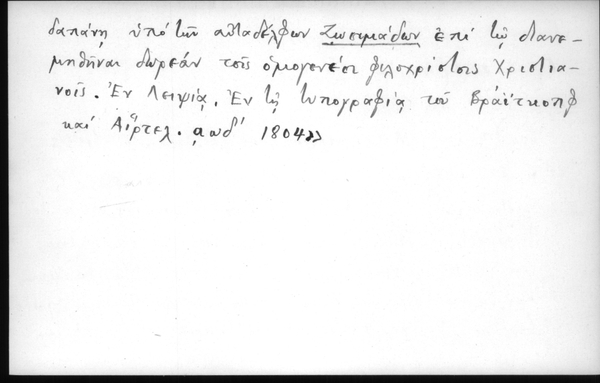 δαπάνῃ ὑπὸ τῶν αὐταδέλφων Ζωσιμάδων ἐπὶ τῷ διανε-
μηθῆναι δωρεὰν τοῖς ὁμογενέσι φιλοχρίστοις Χριστια-
νοῖς. Ἐν Λειψίᾳ. Ἐν τῇ τυπογραφίᾳ τοῦ Βράϊτκοπφ
καὶ Αἵρτελ. αωδʹ 1804»